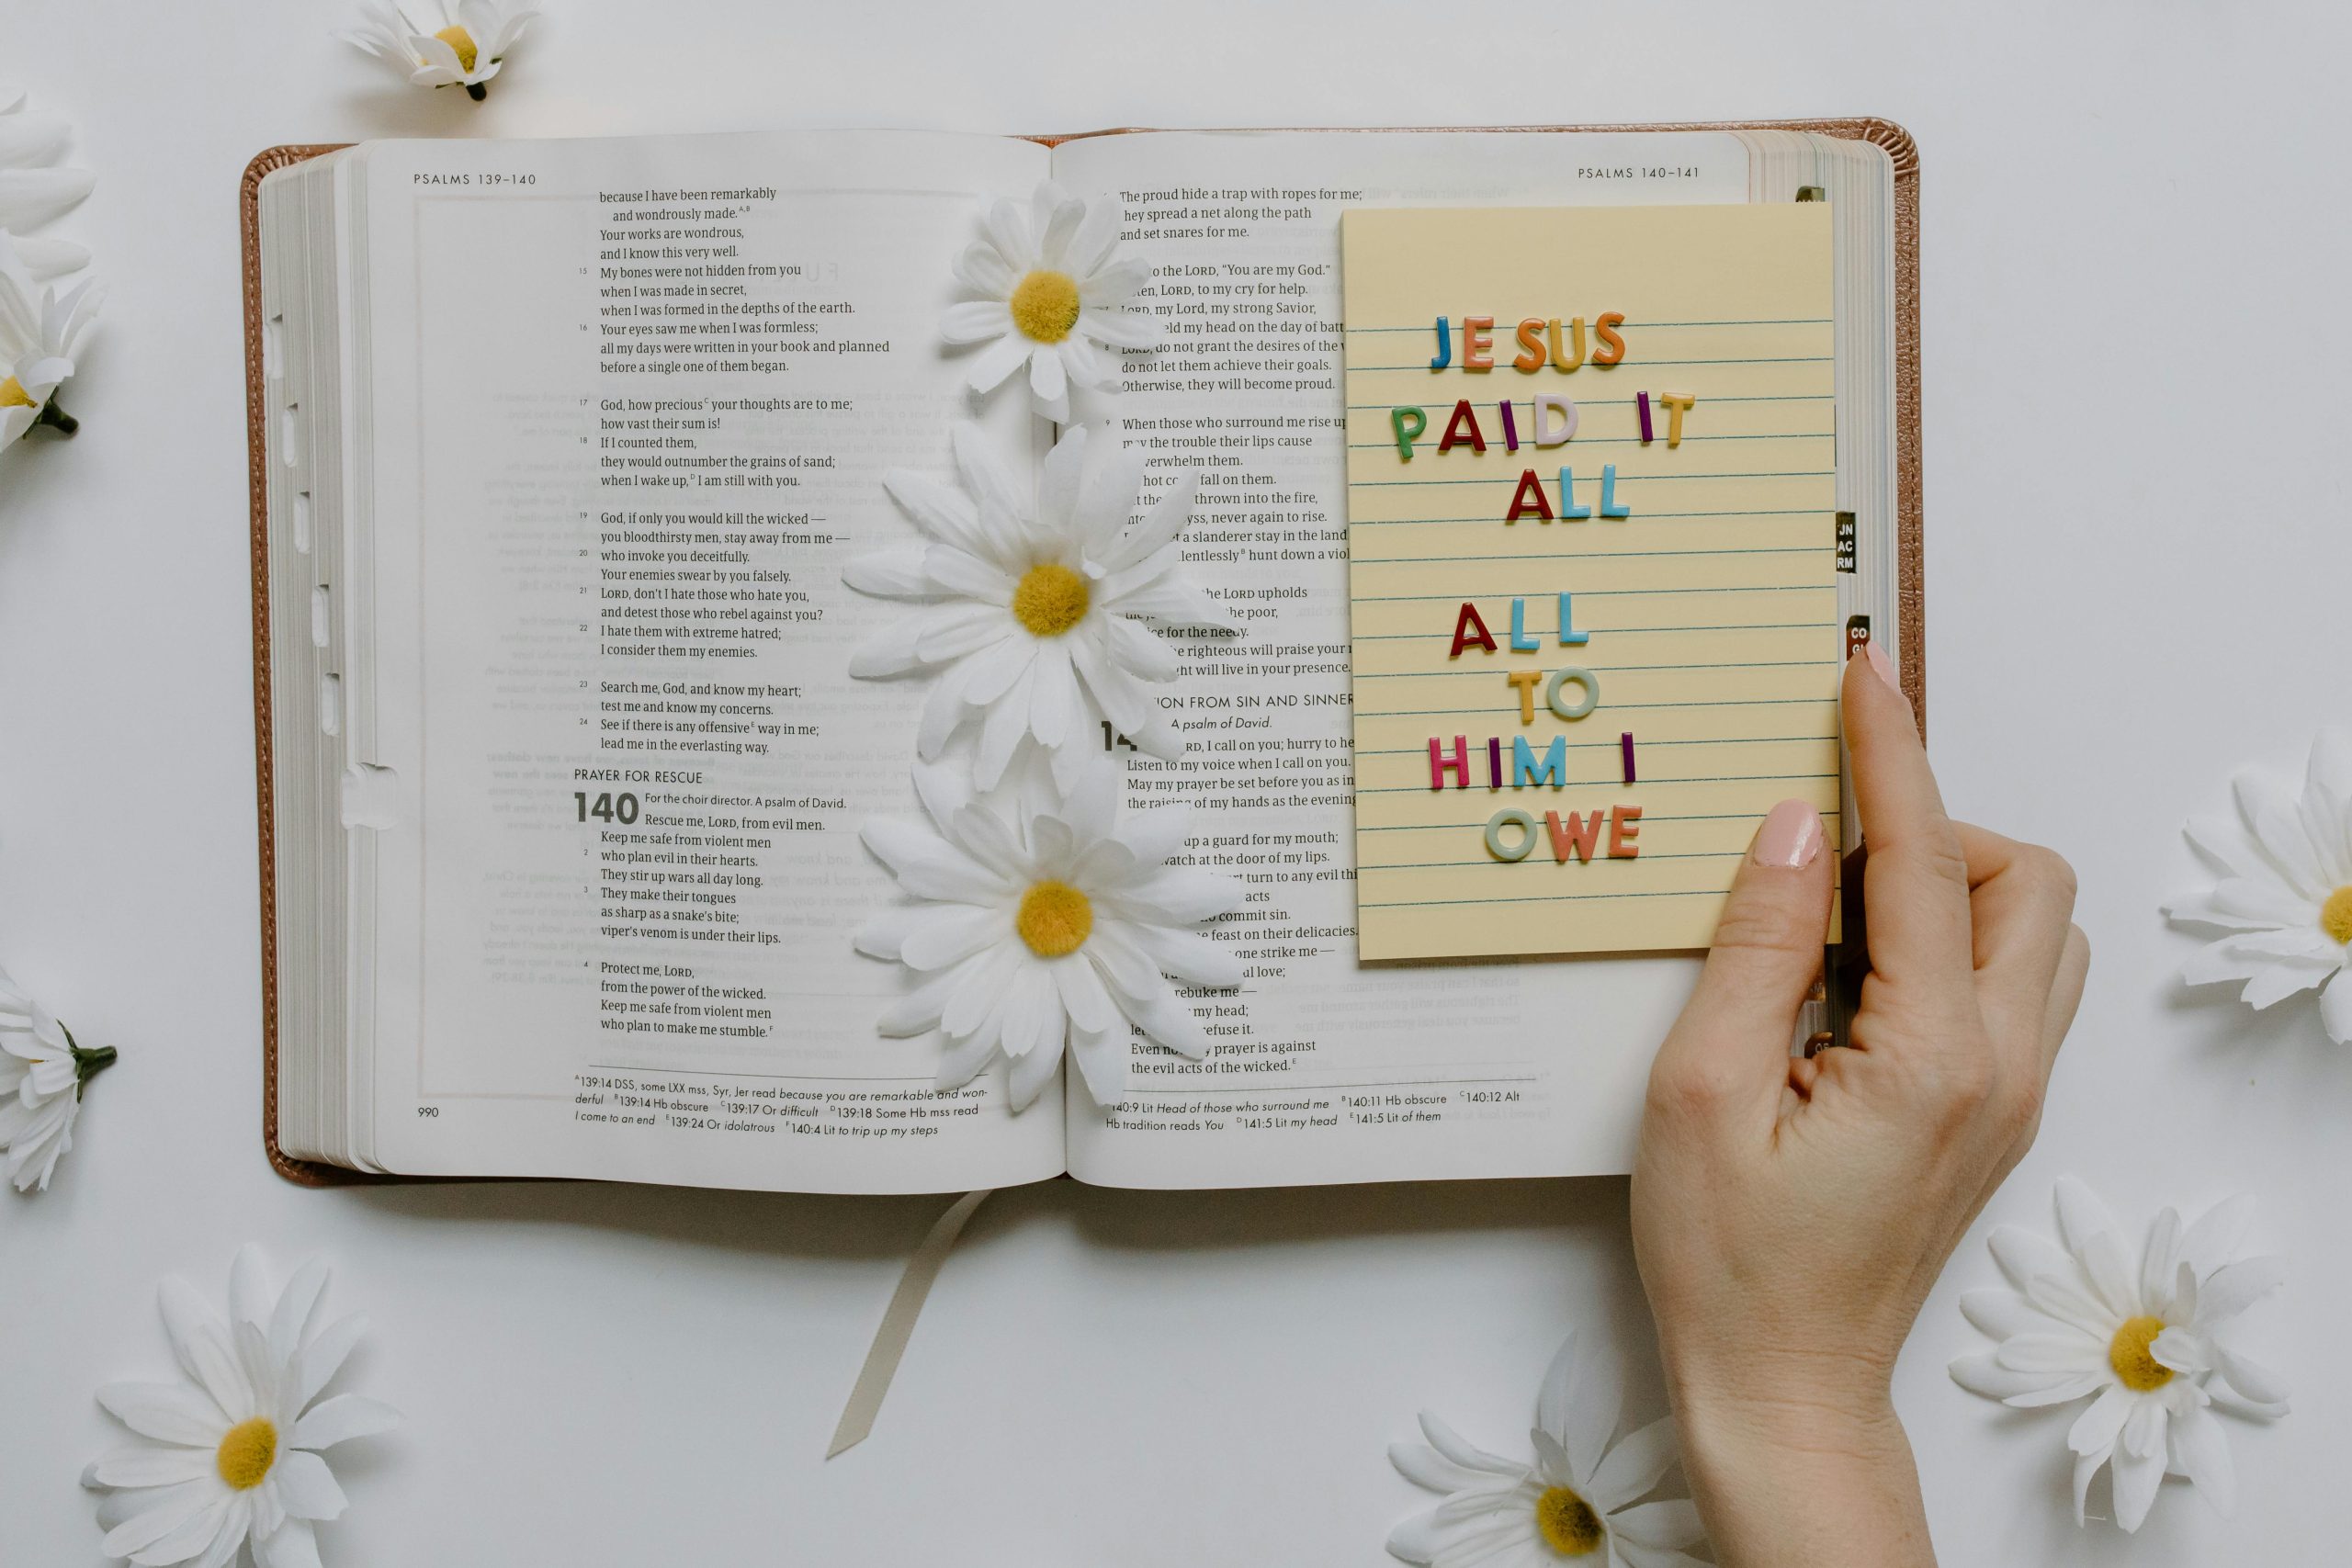 PSALMS 139–140
because I have been remarkably
and wondrously made.A,B
Your works are wondrous,
and I know this very well.
15 My bones were not hidden from you
when I was made in secret,
when I was formed in the depths of the earth.
16 Your eyes saw me when I was formless;
all my days were written in your book and planned
before a single one of them began.
17 God, how preciousC your thoughts are to me;
how vast their sum is!
18 If I counted them,
they would outnumber the grains of sand;
when I wake up,D I am still with you.
19 God, if only you would kill the wicked —
you bloodthirsty men, stay away from me —
20 who invoke you deceitfully.
Your enemies swear by you falsely.
21 LORD, don't I hate those who hate you,
and detest those who rebel against you?
22 I hate them with extreme hatred;
I consider them my enemies.
23 Search me, God, and know my heart;
test me and know my concerns.
24 See if there is any offensiveE way in me;
lead me in the everlasting way.
PRAYER FOR RESCUE
140 For the choir director. A psalm of David.
Rescue me, LORD, from evil men.
Keep me safe from violent men
2 who plan evil in their hearts.
They stir up wars all day long.
3 They make their tongues
as sharp as a snake's bite;
viper's venom is under their lips.
4 Protect me, LORD,
from the power of the wicked.
Keep me safe from violent men
who plan to make me stumble.F
A139:14 DSS, some LXX mss, Syr, Jer read because you are remarkable and won-
derful B139:14 Hb obscure C139:17 Or difficult D139:18 Some Hb mss read
I come to an end E139:24 Or idolatrous F140:4 Lit to trip up my steps
990
PSALMS 140–141
The proud hide a trap with ropes for me;
hey spread a net along the path
and set snares for me.
o the LORD, “You are my God.”
en, LORD, to my cry for help.
LORD, my Lord, my strong Savior,
eld my head on the day of batt
8 LORD, do not grant the desires of the
do not let them achieve their goals.
Otherwise, they will become proud.
9 When those who surround me rise up
may the trouble their lips cause
verwhelm them.
hot co fall on them.
t the thrown into the fire,
yss, never again to rise.
t a slanderer stay in the land
lentlesslyB hunt down a viol
the LORD upholds
the poor,
ice for the needy.
e righteous will praise your
ht will live in your presence.
ION FROM SIN AND SINNER
14 A psalm of David.
RD, I call on you; hurry to he
Listen to my voice when I call on you.
May my prayer be set before you as in
the raising of my hands as the evening
up a guard for my mouth;
watch at the door of my lips.
turn to any evil thi
acts
commit sin.
feast on their delicacies.
one strike me —
ul love;
rebuke me —
my head;
let refuse it.
Even now my prayer is against
the evil acts of the wicked.E
140:9 Lit Head of those who surround me B140:11 Hb obscure C140:12 Alt
Hb tradition reads You D141:5 Lit my head E141:5 Lit of them
JESUS
PAID IT
ALL
ALL
TO
HIM I
OWE
JN
AC
RM
CO